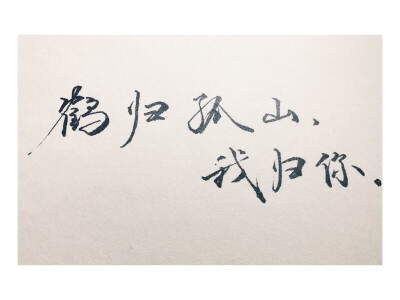 鹤归孤山、
我归你、